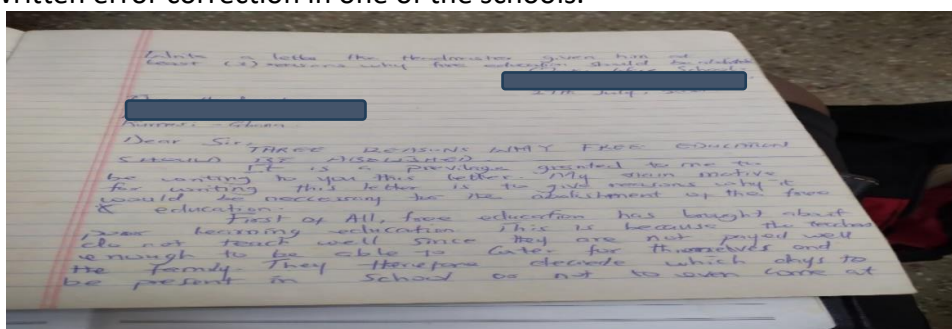 written error correction in one of the schools.
Write a letter the Headmaster given him at
least (3) reasons why free education should be abolished
27th July,
Ghana
Dear Sir,
THREE REASONS WHY FREE EDUCATION
SHOULD BE
It is a previlage granted to me to
be writing to you this letter. My main motive
for writing this letter is to give reasons why it
would be neccessary for the abolishment of the free
education.
First of All, free education has bought about
poor learning education This is because the teachers
do not teach well since they are not payed well
enough to be able to cater for themselves and
the family. They therefore decide which days to
be present in School or not to even come at